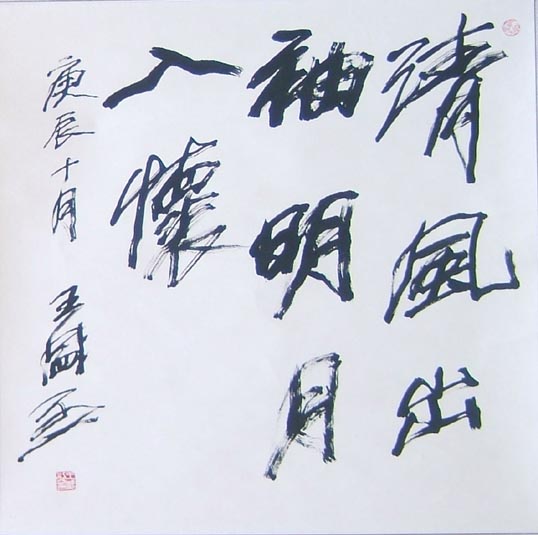 清風出
袖明月
入懷
庚辰十月
王國